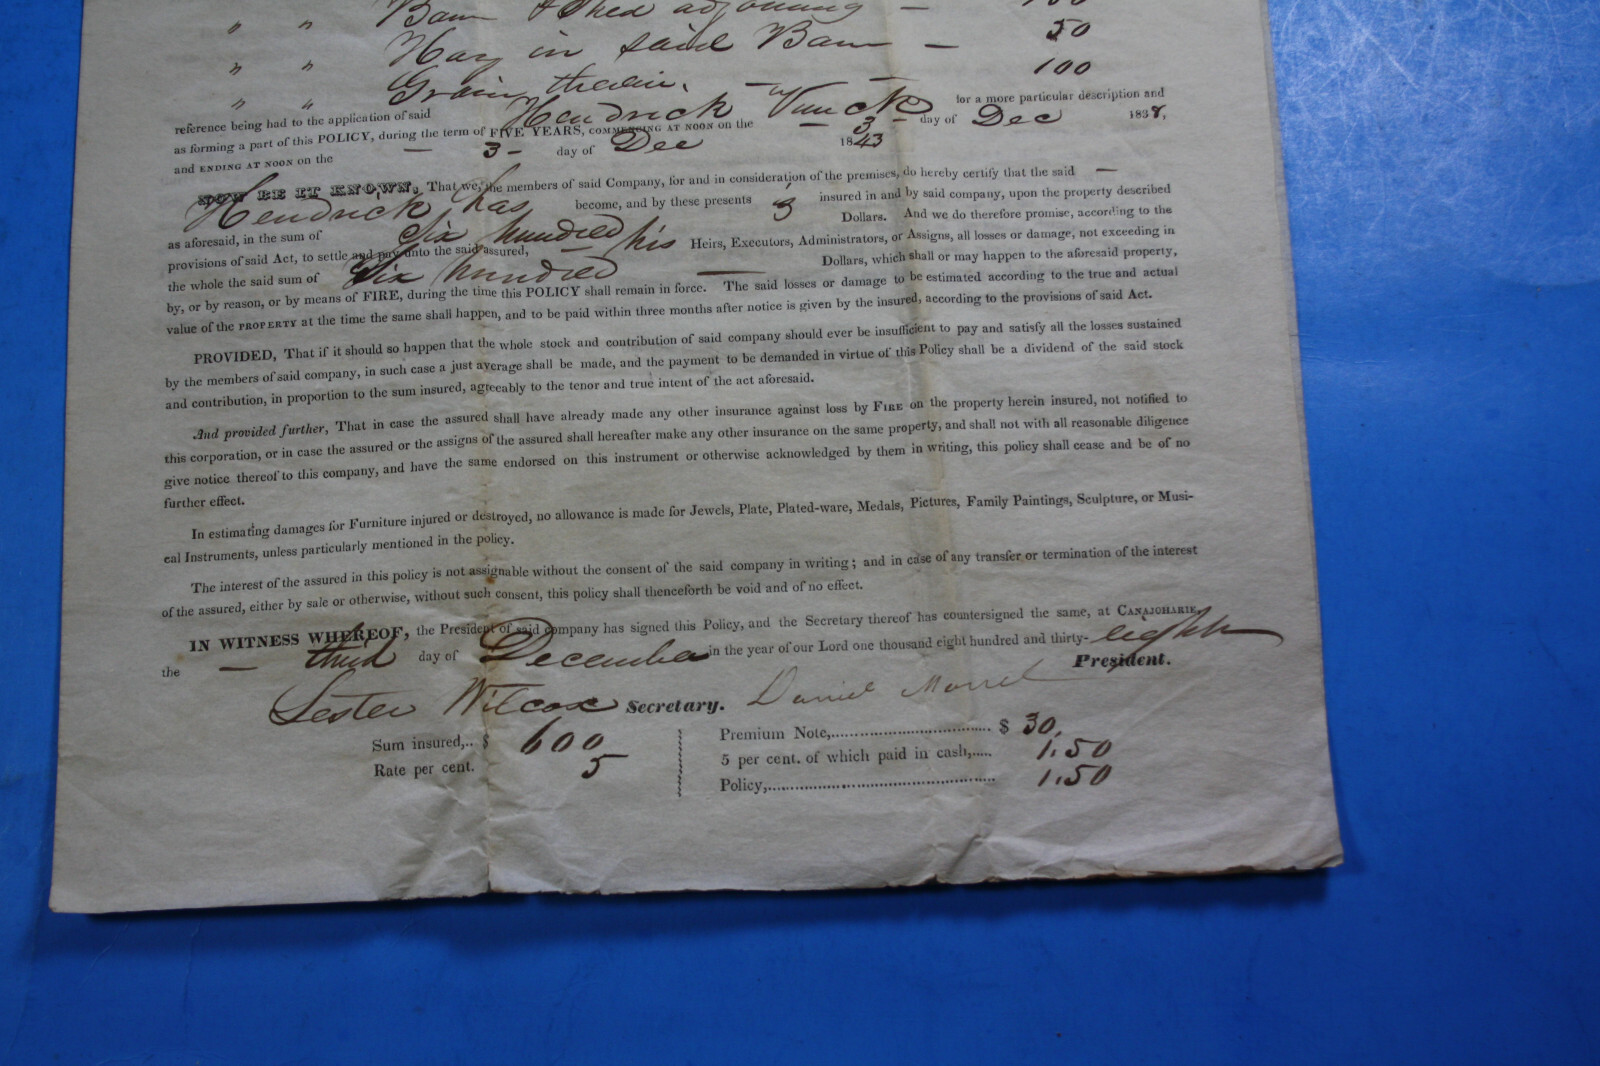 " " Barn & Shed adjoining —
" " Hay in said Barn — 50
" " Grain therein. — 100
reference being had to the application of said Hendrick for a more particular description and
as forming a part of this POLICY, during the term of FIVE YEARS, COMMENCING AT NOON on the — 3 – day of Dec 1838,
and ENDING AT NOON on the — 3 – day of Dec 1843
NOW BE IT KNOWN, That we, the members of said Company, for and in consideration of the premises, do hereby certify that the said —
Hendrick has become, and by these presents is insured in and by said company, upon the property described
as aforesaid, in the sum of Six hundred Dollars. And we do therefore promise, according to the
provisions of said Act, to settle and pay unto the said assured, — his Heirs, Executors, Administrators, or Assigns, all losses or damage, not exceeding in
the whole the said sum of Six hundred — Dollars, which shall or may happen to the aforesaid property,
by, or by reason, or by means of FIRE, during the time this POLICY shall remain in force. The said losses or damage to be estimated according to the true and actual
value of the PROPERTY at the time the same shall happen, and to be paid within three months after notice is given by the insured, according to the provisions of said Act.
PROVIDED, That if it should so happen that the whole stock and contribution of said company should ever be insufficient to pay and satisfy all the losses sustained
by the members of said company, in such case a just average shall be made, and the payment to be demanded in virtue of this Policy shall be a dividend of the said stock
and contribution, in proportion to the sum insured, agreeably to the tenor and true intent of the act aforesaid.
And provided further, That in case the assured shall have already made any other insurance against loss by FIRE on the property herein insured, not notified to
this corporation, or in case the assured or the assigns of the assured shall hereafter make any other insurance on the same property, and shall not with all reasonable diligence
give notice thereof to this company, and have the same endorsed on this instrument or otherwise acknowledged by them in writing, this policy shall cease and be of no
further effect.
In estimating damages for Furniture injured or destroyed, no allowance is made for Jewels, Plate, Plated-ware, Medals, Pictures, Family Paintings, Sculpture, or Musi-
cal Instruments, unless particularly mentioned in the policy.
The interest of the assured in this policy is not assignable without the consent of the said company in writing; and in case of any transfer or termination of the interest
of the assured, either by sale or otherwise, without such consent, this policy shall thenceforth be void and of no effect.
IN WITNESS WHEREOF, the President of said company has signed this Policy, and the Secretary thereof has countersigned the same, at CANAJOHARIE,
the — third day of December in the year of our Lord one thousand eight hundred and thirty- eight
President.
Lester Wilcox Secretary. Daniel Morrel
Sum insured,.. $ 600
Rate per cent. 5
Premium Note,.............................. $ 30.
5 per cent. of which paid in cash,..... 1.50
Policy,............................................ 1.50